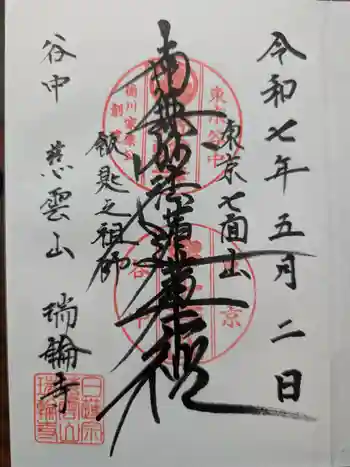 令和七年五月二日
東京七面山
南無妙法蓮華経
飯匙之祖師
谷中 慈雲山 瑞輪寺
東京谷中
徳川家康公
創
東京
谷中
日蓮宗
慈雲山
瑞輪寺